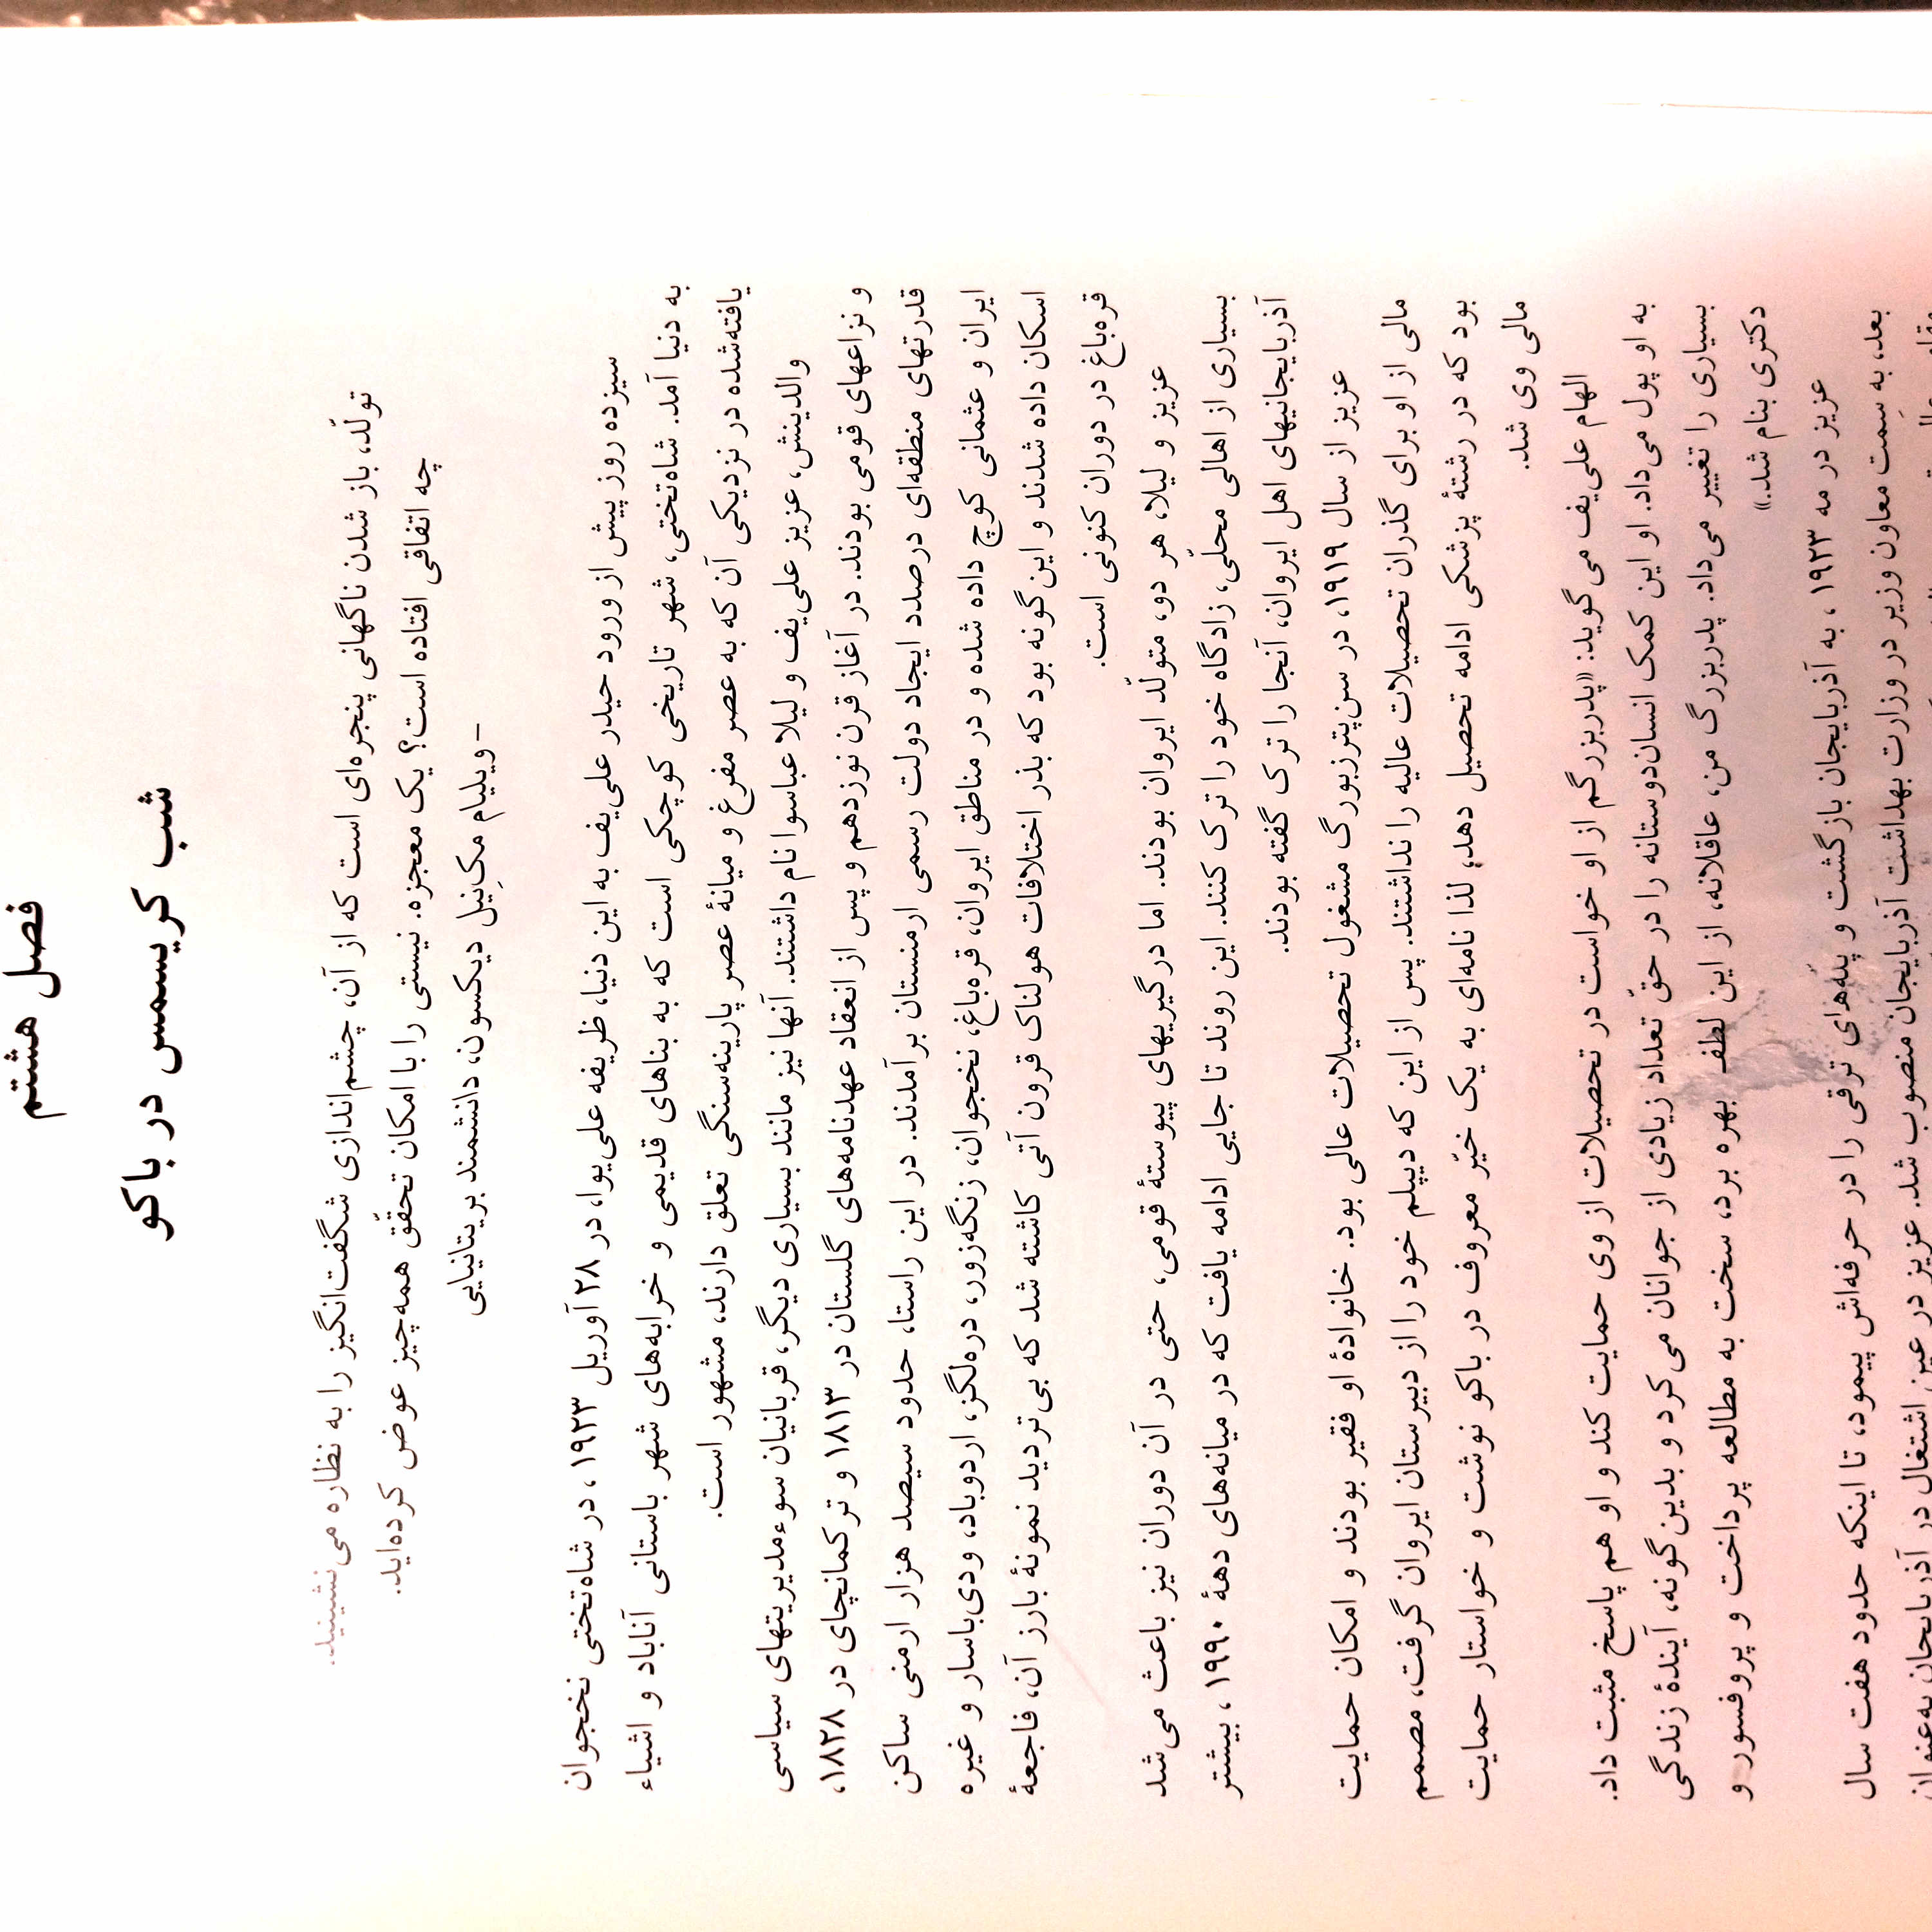 فصل هشتم
شب کریسمس در باکو
تولّد، باز شدن ناگهانی پنجره‌ای است که از آن، چشم‌اندازی شگفت‌انگیز را به نظاره می‌نشینید.
چه اتفاقی افتاده است؟ یک معجزه. نیستی را با امکان تحقّق همه‌چیز عوض کرده‌اید.
– ویلیام مک‌نِیل دیکسون، دانشمند بریتانیایی
سیزده روز پیش از ورود حیدر علی‌یف به این دنیا، ظریفه علی‌یوا، در ۲۸ آوریل ۱۹۲۳، در شاه‌تختی نخجوان
به دنیا آمد. شاه‌تختی، شهر تاریخی کوچکی است که به بناهای قدیمی و خرابه‌های شهر باستانی آناباد و اشیاء
یافته‌شده در نزدیکی آن که به عصر مفرغ و میانهٔ عصر پارینه‌سنگی تعلق دارند، مشهور است.
والدینش، عزیز علی‌یف و لیلا عباسوا نام داشتند. آنها نیز مانند بسیاری دیگر، قربانیان سوءمدیریتهای سیاسی
و نزاعهای قومی بودند. در آغاز قرن نوزدهم و پس از انعقاد عهدنامه‌های گلستان در ۱۸۱۳ و ترکمانچای در ۱۸۲۸،
قدرتهای منطقه‌ای درصدد ایجاد دولت رسمی ارمنستان برآمدند. در این راستا، حدود سیصد هزار ارمنی ساکن
ایران و عثمانی کوچ داده شده و در مناطق ایروان، قره‌باغ، نخجوان، زنگه‌زور، دره‌لگز، اردوباد، ودی‌باسار و غیره
اسکان داده شدند و این‌گونه بود که بذر اختلافات هولناک قرون آتی کاشته شد که بی‌تردید نمونهٔ بارز آن، فاجعهٔ
قره‌باغ در دوران کنونی است.
عزیز و لیلا، هر دو، متولّد ایروان بودند. اما درگیریهای پیوستهٔ قومی، حتی در آن دوران نیز باعث می‌شد
بسیاری از اهالی محلّی، زادگاه خود را ترک کنند. این روند تا جایی ادامه یافت که در میانه‌های دههٔ ۱۹۹۰، بیشتر
آذربایجانیهای اهل ایروان، آنجا را ترک گفته بودند.
عزیز از سال ۱۹۱۹، در سن‌پترزبورگ مشغول تحصیلات عالی بود. خانوادهٔ او فقیر بودند و امکان حمایت
مالی از او برای گذران تحصیلات عالیه را نداشتند. پس از این که دیپلم خود را از دبیرستان ایروان گرفت، مصمم
بود که در رشتهٔ پزشکی ادامه تحصیل دهد، لذا نامه‌ای به یک خیّر معروف در باکو نوشت و خواستار حمایت
مالی وی شد.
الهام علی‌یف می‌گوید: «پدربزرگم از او خواست در تحصیلات از وی حمایت کند و او هم پاسخ مثبت داد.
به او پول می‌داد. او این کمک انسان‌دوستانه را در حقّ تعداد زیادی از جوانان می‌کرد و بدین‌گونه، آیندهٔ زندگی
بسیاری را تغییر می‌داد. پدربزرگ من، عاقلانه، از این لطف بهره برد، سخت به مطالعه پرداخت و پروفسور و
دکتری بنام شد.»
عزیز در مه ۱۹۲۳، به آذربایجان بازگشت و پلّه‌های ترقی را در حرفه‌اش پیمود، تا اینکه حدود هفت سال
بعد، به سِمت معاون وزیر در وزارت بهداشت آذربایجان منصوب شد. عزیز در عین اشتغال در آذربایجان به‌عنوان